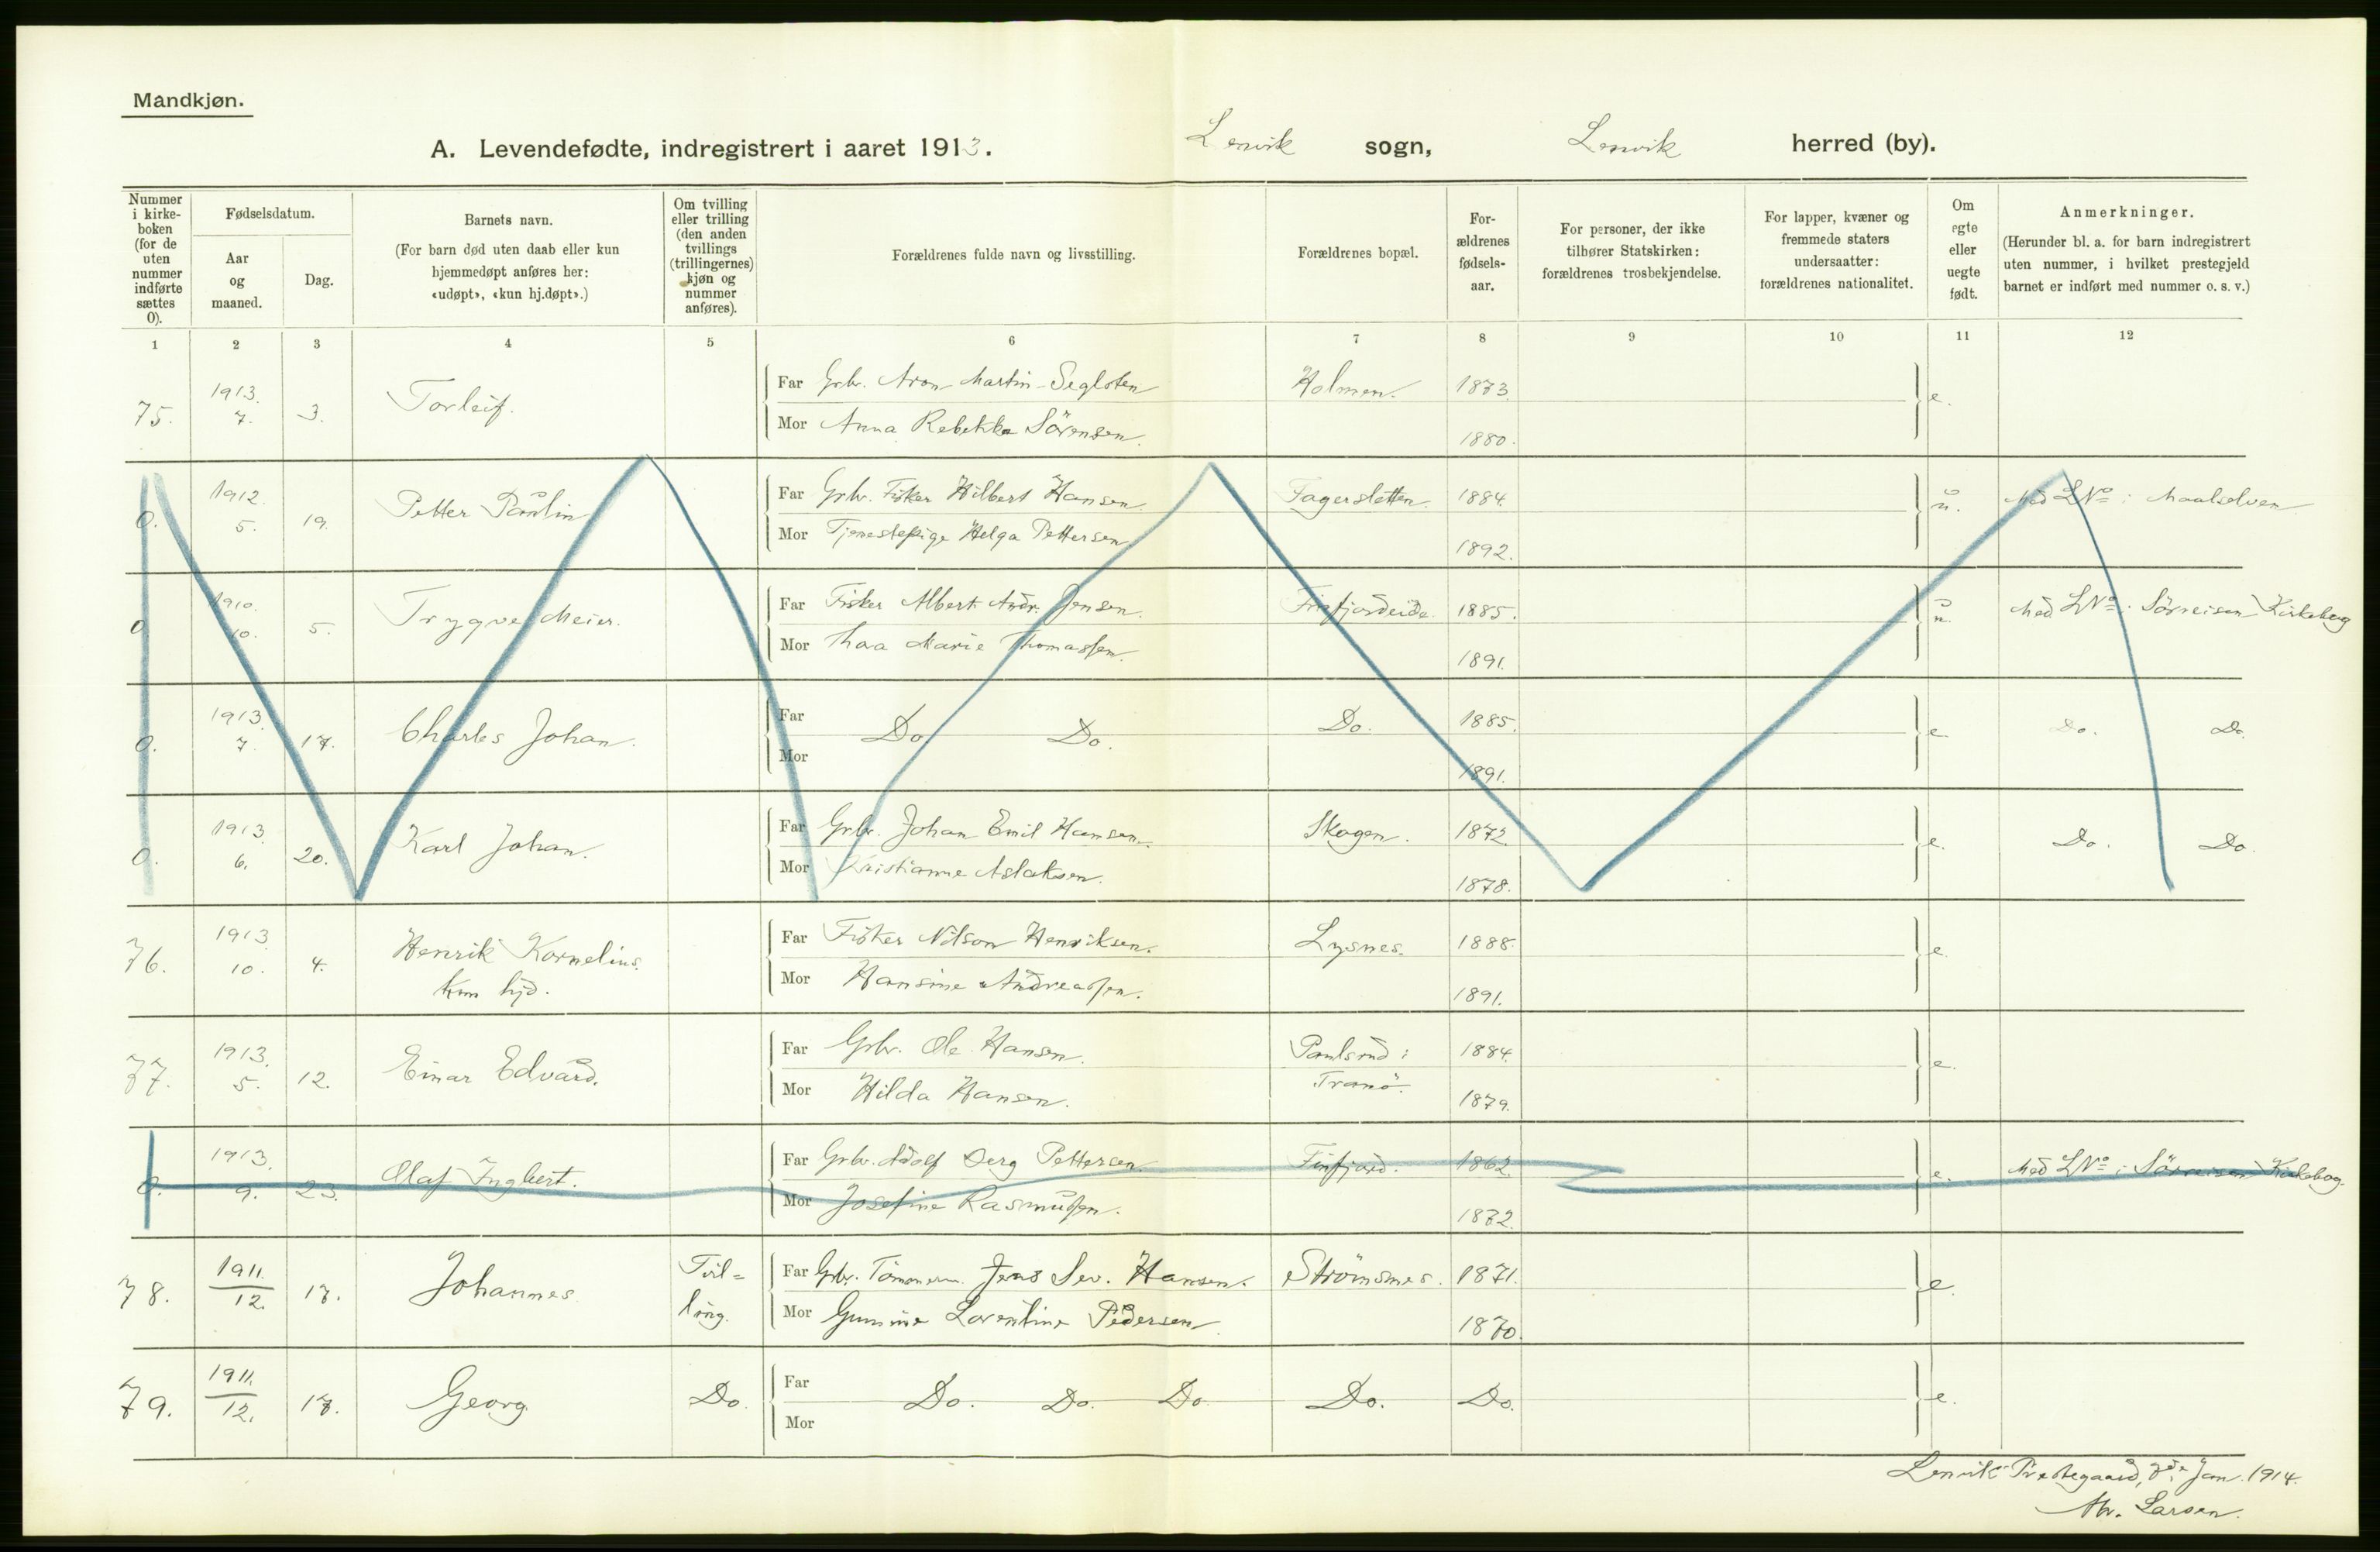 Mandkjøn.
A. Levendefødte, indregistrert i aaret 1913. Lenvik sogn, Lenvik herred (by).
Nummer i kirke-boken (for de uten nummer indførte sættes 0).
Fødselsdatum.
Aar og maaned.
Dag.
Barnets navn.
(For barn død uten daab eller kun hjemmedøpt anføres her: «udøpt», «kun hj.døpt».)
Om tvilling eller trilling (den anden tvillings (trillingernes) kjøn og nummer anføres).
Forældrenes fulde navn og livsstilling.
Forældrenes bopæl.
For-ældrenes fødsels-aar.
For personer, der ikke tilhører Statskirken: forældrenes trosbekjendelse.
For lapper, kvæner og fremmede staters undersaatter: forældrenes nationalitet.
Om egte eller uegte født.
Anmerkninger.
(Herunder bl. a. for barn indregistrert uten nummer, i hvilket prestegjeld barnet er indført med nummer o. s. v.)
1 2 3 4 5 6 7 8 9 10 11 12
75. 1913. 7. 3. Torleif. Far Grbr. Aron Martin Segloten Holmen. 1873. e.
Mor Anna Rebekka Sörensen. 1880.
0. 1912. 5. 19. Petter Paulin Far Grbr. Fisker Hilbert Hansen Fagersletten. 1884. u. Med LNo i Maalselven
Mor Tjenestepige Helga Pettersen 1892.
0 1910. 10. 5. Trygve Meier. Far Fisker Albert Andr. Jensen. Finfjordeide. 1885. u. Med LNo i Sörreisen Kirkebog
Mor Thea Marie Thomassen. 1891.
0. 1913. 7. 17. Charles Johan. Far Do Do. Do. 1885. e. Do. Do.
Mor 1891.
0. 1913. 6. 20. Karl Johan. Far Grbr. Johan Emil Hansen. Skogen. 1872. e. Do. Do.
Mor Kristianne Aslaksen. 1878.
76. 1913. 10. 4. Henrik Kornelius. Far Fisker Nilson Henriksen. Lysnes. 1888. e.
kun hjd. Mor Hansine Andreassen. 1891.
77. 1913. 5. 12. Einar Edvard. Far Grbr. Ole Hansen. Paulsrud i 1884. e.
Mor Hilda Hansen. Tranö. 1879.
0. 1913. 9. 23. Olaf Ingbert. Far Grbr. Adolf Berg Pettersen Finfjord. 1862 e. Med LNo i Sörreisen Kirkebog.
Mor Josefine Rasmussen. 1872.
78. 1911. 12. 17. Johannes Tvil= Far Grbr. Tömmerm. Jens Sev. Hansen. Strömsnes. 1871. e.
ling. Mor Gunnine Lorentine Pedersen 1870.
79. 1911. 12. 17. Georg Do. Far Do. Do. Do. Do. Do. e.
Mor
Lenvik Prestegaard, 7de Jan. 1914.
Larsen.